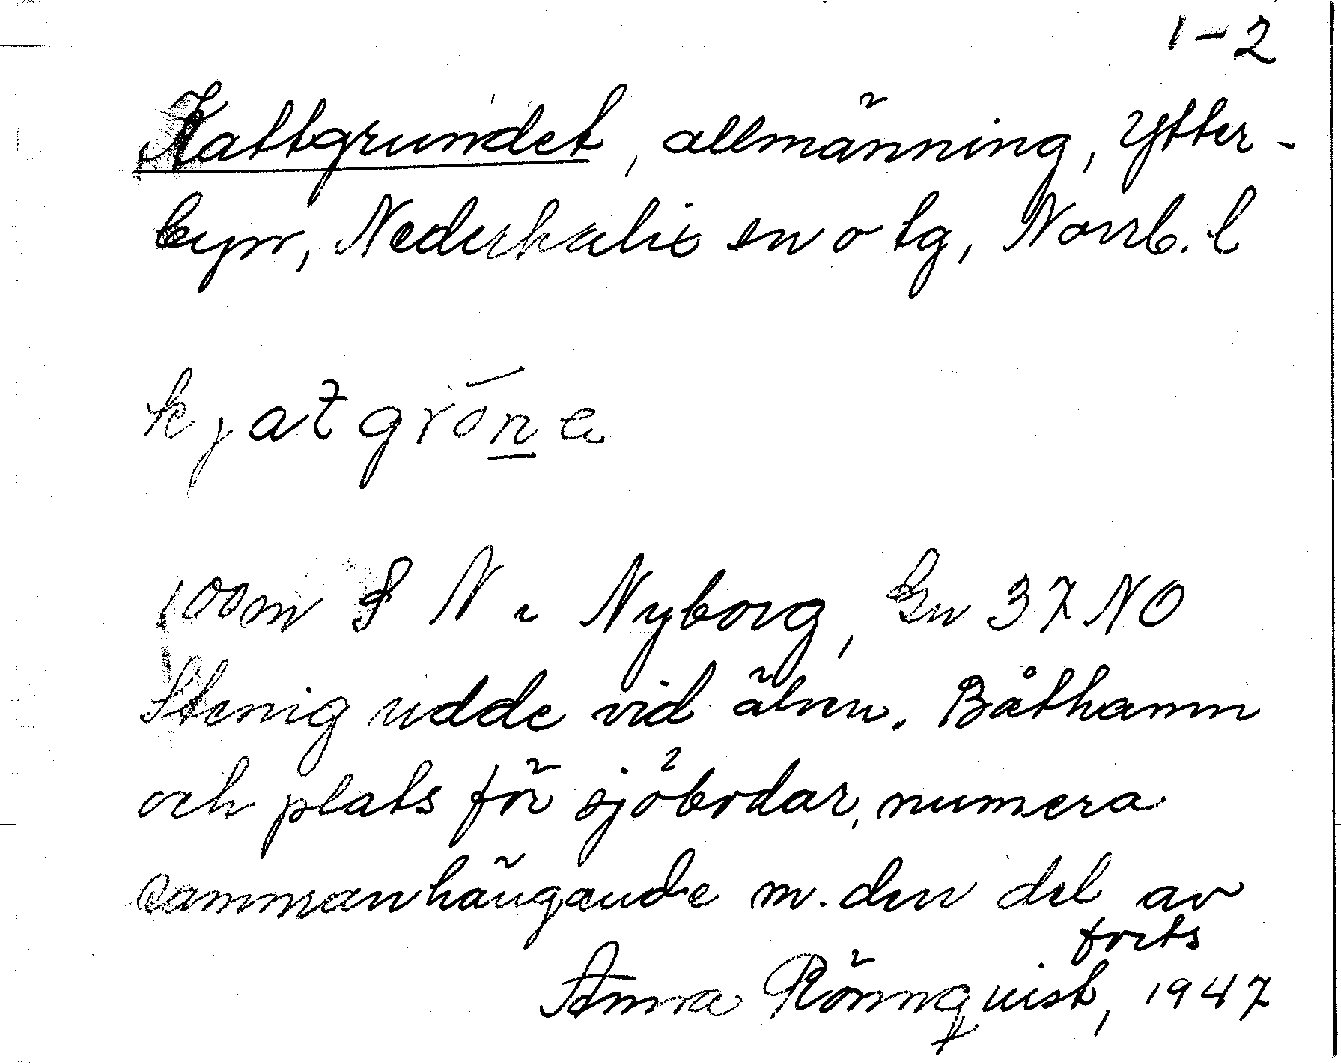 1-2
Kattgrundet, allmänning, Ytter-
byn, Nederkalix sn o tg, Norrb. l
kjatgrōṉe
100m S N. Nyborg, Gv 37 NO
Stenig udde vid älven. Båthamn
och plats för sjöbodar, numera
sammanhängande m. den del av
forts
Anna Rönnquist, 1947